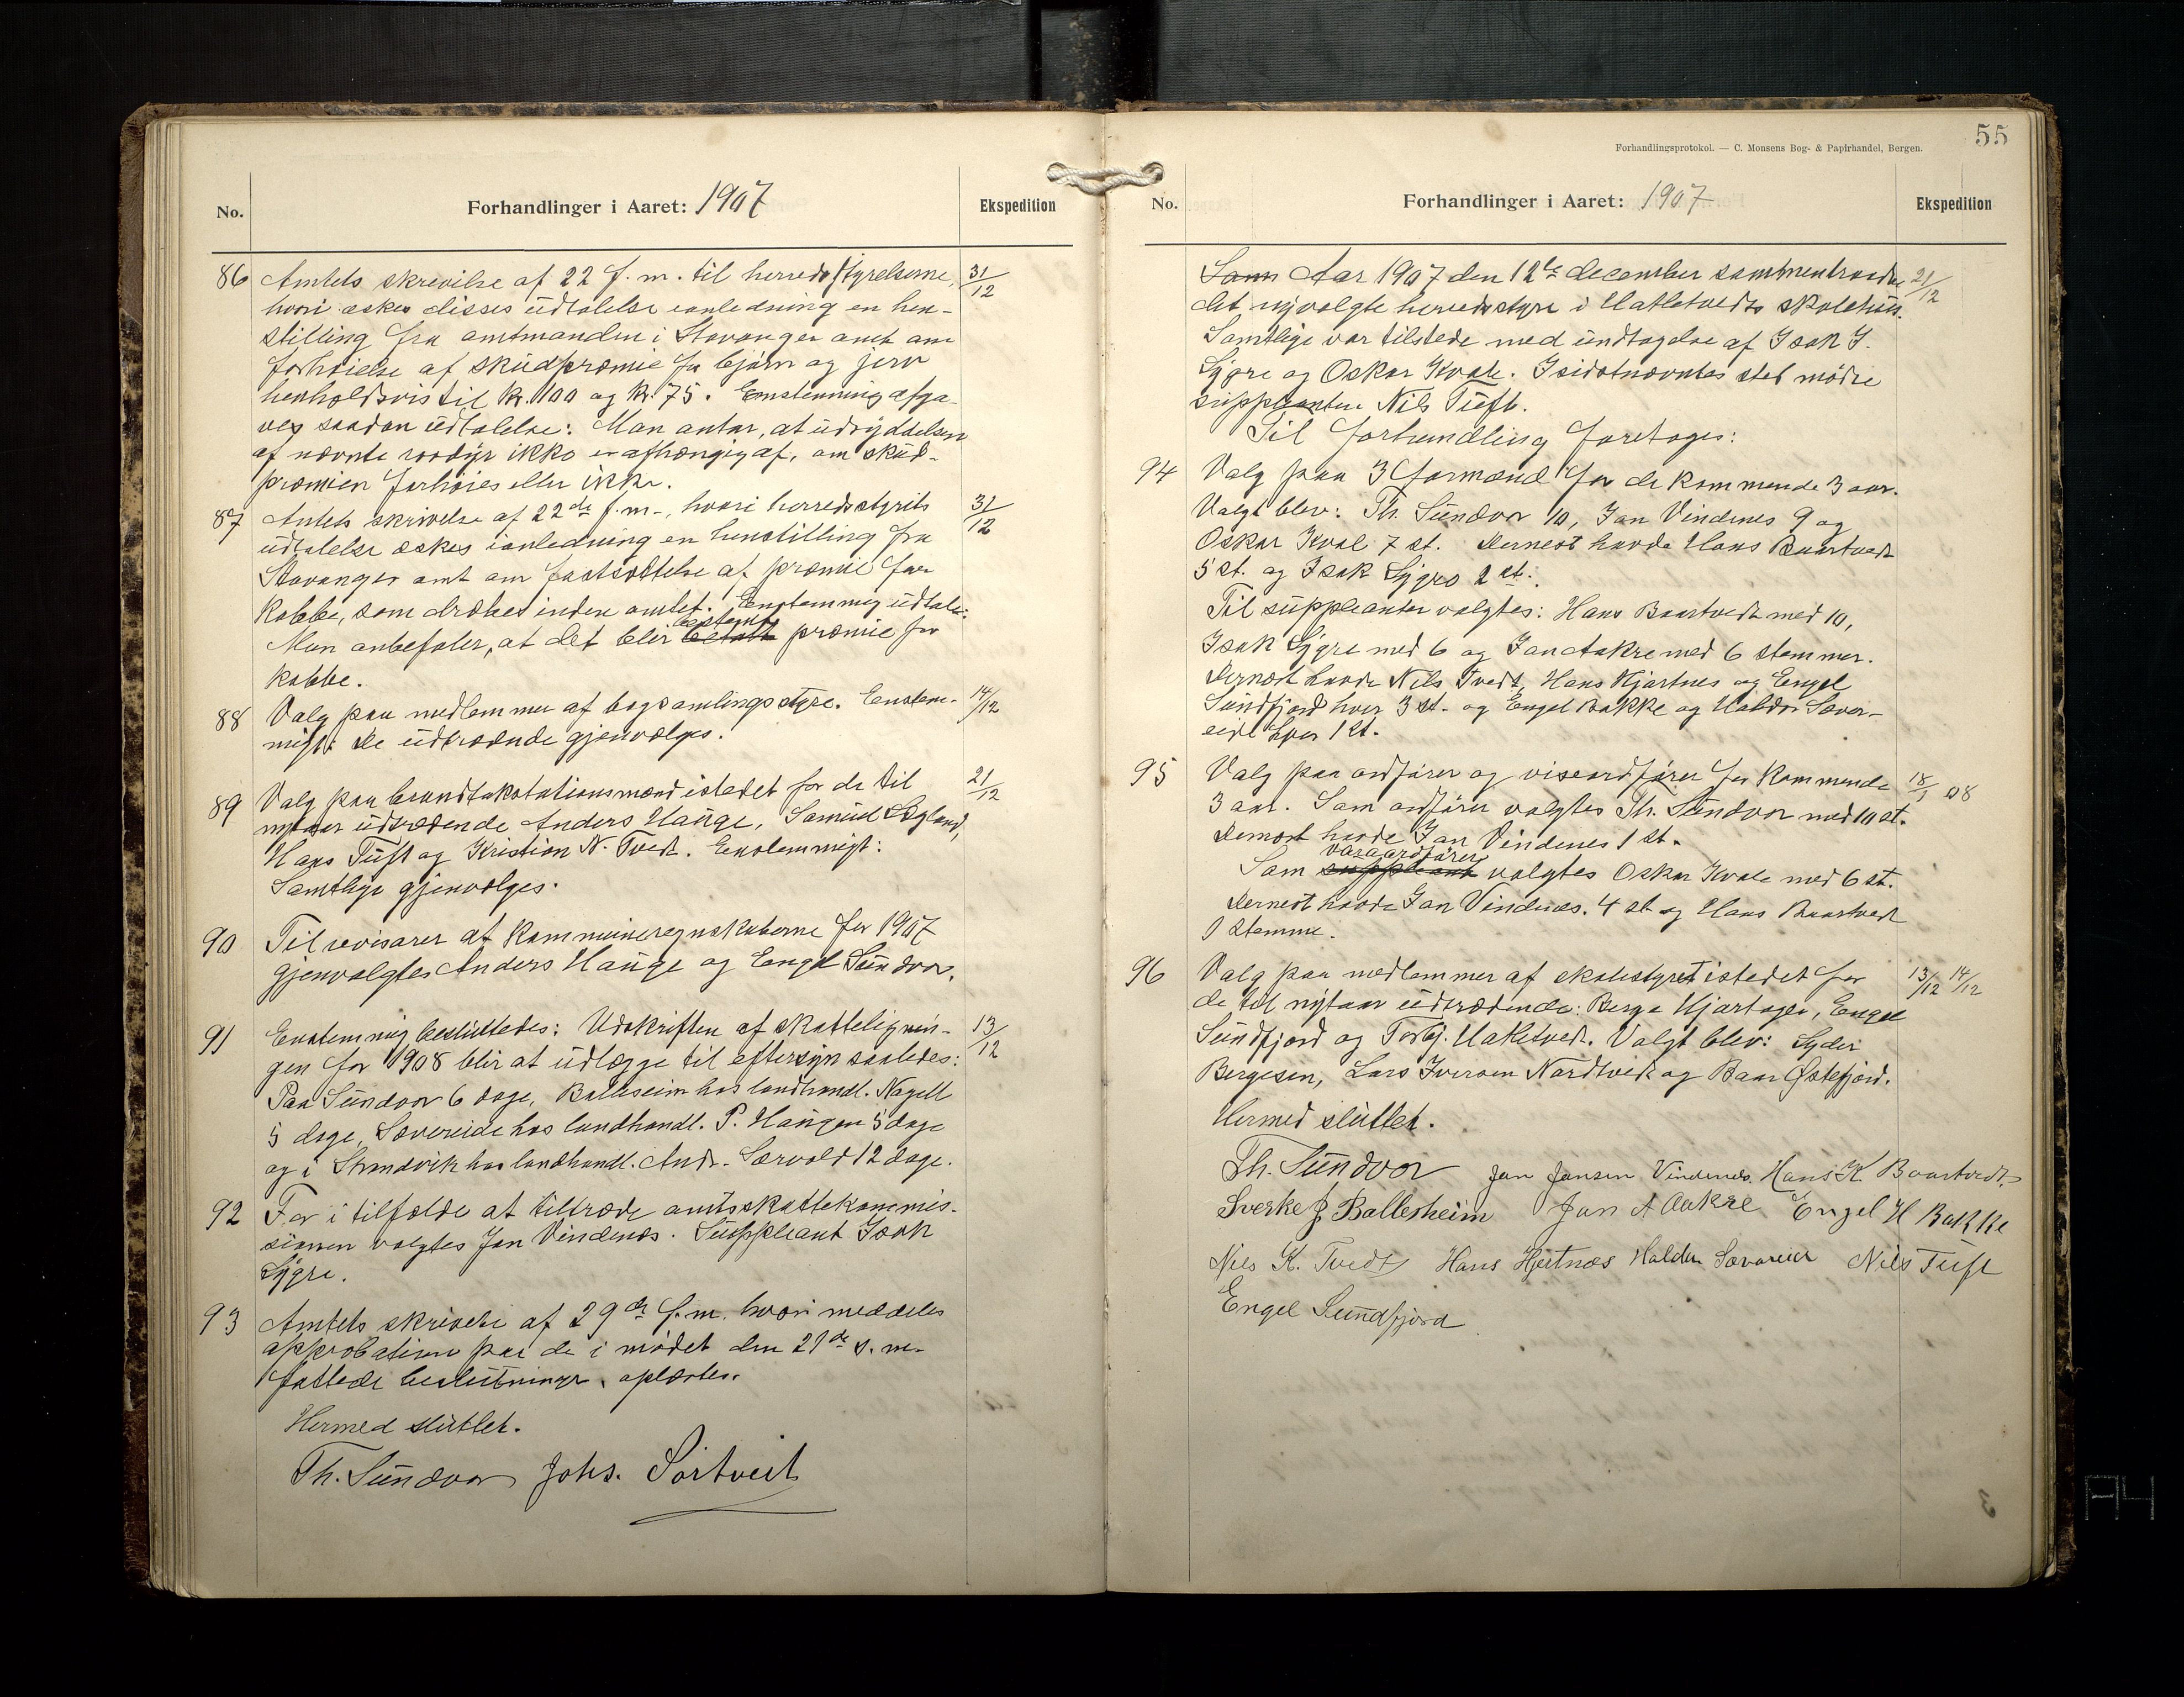 No.
Forhandlinger i Aaret: 1907
Ekspedition
86 Amtets skrivelse af 22 f. m. til herredsstyrelserne, 31/12
hvori æskes disses udtalelse ianledning en hen-
stilling fra amtmanden i Stavanger amt om
forhøielse af skudpræmie for bjørn og jerv
henholdsvis til kr. 100 og kr. 75. Enstemmig afga-
ves saadan udtalelse: Man antar, at udryddelsen
af nævnte rovdyr ikke er afhængig af, om skud-
præmien forhøies eller ikke.
87 Amtets skrivelse af 22de f. m., hvori herredsstyrets 31/12
udtalelse æskes ianledning en henstilling fra
Stavanger amt om fastsættelse af præmie for
kobbe, som dræbes inden amtet. Enstemmig udtales:
Man anbefaler, at det blir bestemt præmie for
kobbe.
88 Valg paa medlemmer af bogsamlingsstyre. Enstem- 14/12
migt: De udtrædende gjenvælges.
89 Valg paa brandtakstationsmænd istedet for de til 21/12
nytaar udtrædende Anders Hauge, Samuel Ægland,
Hans Tuft og Kristian N. Tvedt. Enstemmigt:
Samtlige gjenvælges.
90 Til revisorer af kommuneregnskaberne for 1907
gjenvalgtes Anders Hauge og Engel Sundvor.
91 Enstemmig besluttedes: Udskriften af skattelignin- 13/12
gen for 1908 blir at udlægge til eftersyn saaledes:
Paa Sundvor 6 dage, Balleseim hos landhandl. Nagell
5 dage, Sævereide hos landhandl. P. Haugen 5 dage
og i Strandvik hos landhandl. Andr. Særvold 12 dage.
92 For i tilfælde at tiltræde amtsskattekommis-
sionen valgtes Jan Vindenes. Suppleant Isak
Lygre.
93 Amtets skrivelse af 29de f. m. hvori meddeles
approbation paa de i mødet den 21de s. m.
fattede beslutninger, oplæstes.
Hermed sluttet.
Th. Sundvor Johs. Sørtveit
55
Forhandlingsprotokol. — C. Monsens Bog- & Papirhandel, Bergen.
No.
Forhandlinger i Aaret: 1907
Ekspedition
Samm Aar 1907 den 12te december sammentraadte 21/12
det nyvalgte herredsstyre i Hatletvedts skolehus.
Samtlige var tilstede med undtagelse af Isak J.
Lygre og Oskar Kvale. Isidstnævntes sted mødte
suppleanten Nils Tuft.
Til forhandling foretoges:
94 Valg paa 3 formænd for de kommende 3 aar.
Valgt blev: Th. Sundvor 10, Jan Vindenes 9 og
Oskar Kvale 7 st. Dernest havde Hans Baartvedt
5 st. og Isak Lygre 2 st.
Til suppleanter valgtes: Hans Baartvedt med 10,
Isak Lygre med 6 og Jan Aakre med 6 stemmer.
Dernæst havde Nils Tvedt, Hans Hjartnes og Engel
Sundfjord hver 3 st. og Engel Bakke og Haldor Sæver-
eide hver 1 st.
95 Valg paa ordfører og viseordfører for kommende 18/1 08
3 aar. Som ordfører valgtes Th. Sundvor med 10 st.
Dernæst havde Jan Vindenes 1 st.
Som suppleant varaordfører valgtes Oskar Kvale med 6 st.
Dernest havde Jan Vindenes. 4 st. og Hans Baartvedt
1 stemme.
96 Valg paa medlemmer af skolestyret istedet for 13/12 14/12
de til nytaar udtrædende: Berge Hjartager, Engel
Sundfjord og Torbj. Hatletvedt. Valgt blev: Syder
Bergesen, Lars Iversen Nordtvedt og Baar Østefjord.
Hermed sluttet.
Th. Sundvor Jan Jansen Vindenes. Hans K. Baartvedt
Sverke J. Ballesheim Jan A Aakre Engel H Bakke
Nils K. Tvedt Hans Hjertnæs Haldor Sævareid Nils Tuft
Engel Sundfjord